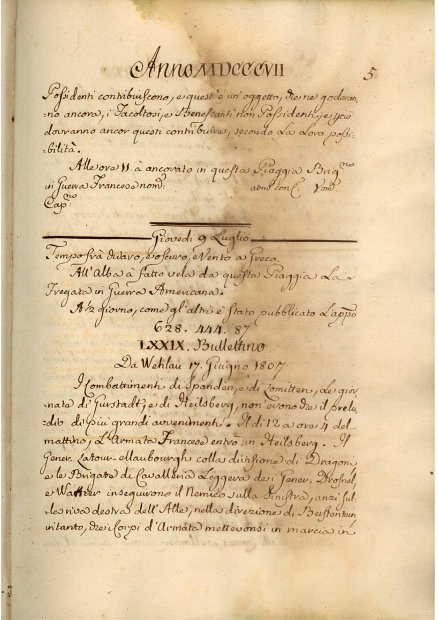 Anno MDCCCVII
5
Possidenti contribuiscono, e quest'è un'oggetto, che ne goderan-
no ancora, i Facoltosi, e Benestanti non Possidenti, e però
dovranno ancor questi contribuire, secondo La Loro possi-
bilità.
Alle ora 11. à ancorato in questa Piaggia Brig.no
in Guerra Francese nom.
Cap.no
Giovedì 9 Luglio
Tempo frà chiaro, e oscuro, e Vento a Greco.
All'Alba à fatto vela da questa Piaggia La
Fregata in Guerra Americana.
A ½ giorno, come gl'altri è stato pubblicato L'app.o
628. 444. 87
LXXIX. Bullettino
Da Wehlau 17 Giugno 1807
I Combattimenti di Spanden, e di Lomitten, Le gior-
nate di Gurstadt, e di Heilsberg, non erono che il prelu-
dio di più grandi avvenimenti. Il di 12 a ore 4 del
mattino, L'Armata Francese entrò in Heilsberg. Il
Gener. Latour-Maubourgh colla divisione di Dragoni
e le Brigate di Cavalleria Leggera dei Gener. Drosnel,
e Wattier inseguirono il Nemico sulla Sinistra, anzi sul-
la riva destra dell'Alle, nella direzione di Bartenstein
intanto, che i Corpi d'Armata mettevonsi in marcia in